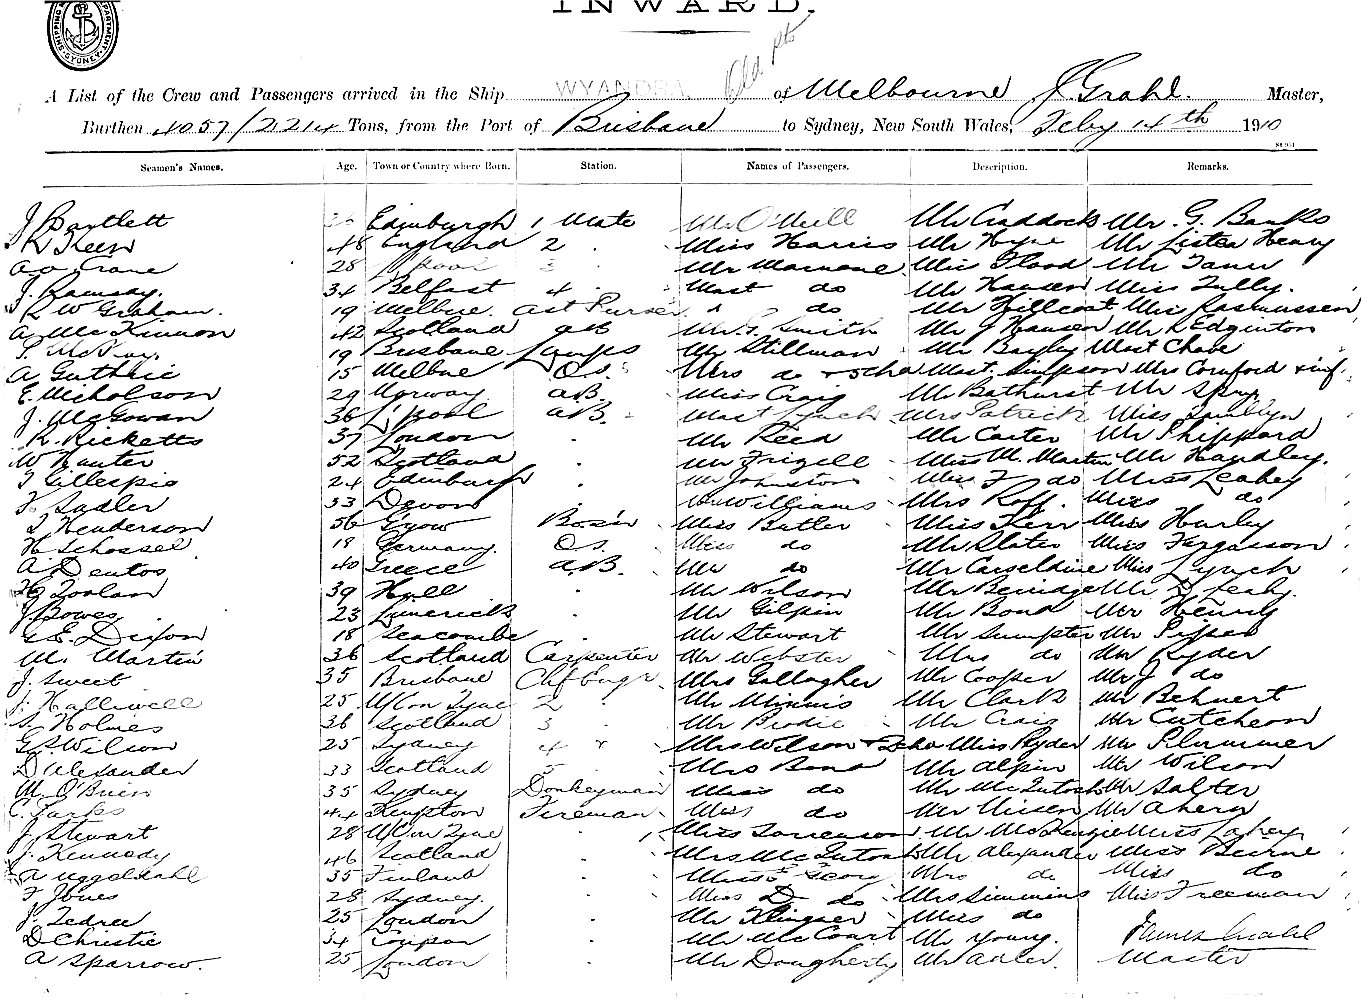 INWARD.
Old pts
A List of the Crew and Passengers arrived in the Ship WYANDRA of Melbourne J. Grahl. Master,
Burthen 4057/2214 Tons, from the Port of Brisbane to Sydney, New South Wales, Feby 14th 1910
Seamen's Names. Age. Town or Country where Born. Station. Names of Passengers. Description. Remarks.
J Bartlett 36 Edinburgh 1 Mate Mr O'Neill Mr Craddock Mr. G. Banks
R Keen 48 England 2 Miss Harris Mr Hyne Mr Lister Heary
A. Crane 28 L'pool 3 Mr Flood
J. Ramsay. 34 Belfast 4 Mast do Mr Hansen Miss Tully.
R W Graham. 19 Melbne. ast Purser " do Mr Hillcoat Miss Rasmussen
A McKinnon 42 Scotland Mr G. Smith Mr J Hansen Mr L Edginton
19 Brisbane Lamps Mr Stillman Mr Bayley Mast Chave
A Guthrie 15 Melbne O.S. Mrs do + 5 chd Mast. Simpson Mrs Cornford + inf.
E. Nicholson 29 Norway a.B. Miss Craig Mr Bathurst Mr Spry
J. McGowan 36 L'pool a.B. Mast Lynch Mrs Patrick Miss Tamlyn
R. Ricketts 37 London Mr Reed Mr Carter Mr Shippard
W Hunter 52 Scotland Mr Frizell Miss M. Martin Mr Handley.
T Gillespie 24 Edinburgh Mr Johnston Miss F do Miss Leahey
F. Sadler 33 Devon Williams Mrs Roff. Miss do
T Henderson 56 G'gow Bos'n Miss Butler Miss Kerr Miss Hurley
H Schossel 19 Germany. O.S. Miss do Mr Slater Miss Fergusson
A Dentos 40 Greece a.B. Mr do Mr Carseldine Miss Lynch
39 Hull Mr Wilson Mr Berridge Mr D Leahy.
J. Bowes 23 Limerick Mr Gilpin Mr Bond Mr Henry
G E. Dixon 18 Seacombe Mr Stewart Mr Sumpter Mr Piper
M. Martin 36 Scotland Carpenter Mr Webster Mrs do Mr Ryder
J. Sweet 35 Brisbane Chf Engr. Mrs Gallagher Mr Cooper Mr J do
J. Halliwell 25 N/C on Tyne 2 Mr Minnis Mr Clark Mr Behnert
S. Holmes 36 Scotland 3 Mr Brodie Mr Craig Mr Cutcheon
G. Wilson 25 Sydney 4 Mrs Wilson + 2 chd Miss Ryder Mr Plummer
D Alexander 33 Scotland 5 Mrs Bond Mr Alpin Mr Wilson
M. O'Brien 35 Sydney Donkeyman Miss do Mr McIntosh Mr Salter
C. Parks 44 Kempton Fireman Miss do Mr Nissen Mr Ahern
J. Stewart 28 N/C on Tyne Miss Sorenson Mr McKenzie Miss Lahey
J. Kennedy 46 Scotland Mrs McIntosh Mr Alexander Miss Beirne
A Uggeldahl 35 Finland Miss F Geary Mrs do Miss do
F Jones 28 Sydney. Miss D do Mrs Simmins Miss Freeman
J. Tedree 25 London Mr Klingner Miss do
D Christie 34 Coupar Mr McCourt Mr Young. James Grahl
A Sparrow. 25 London Mr Dougherty Mr Adler. Master